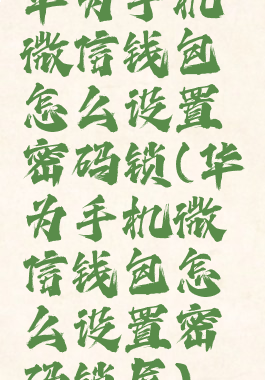 华为手机
微信钱包
怎么设置
密码锁(华
为手机微
信钱包怎
么设置密
码锁屏)